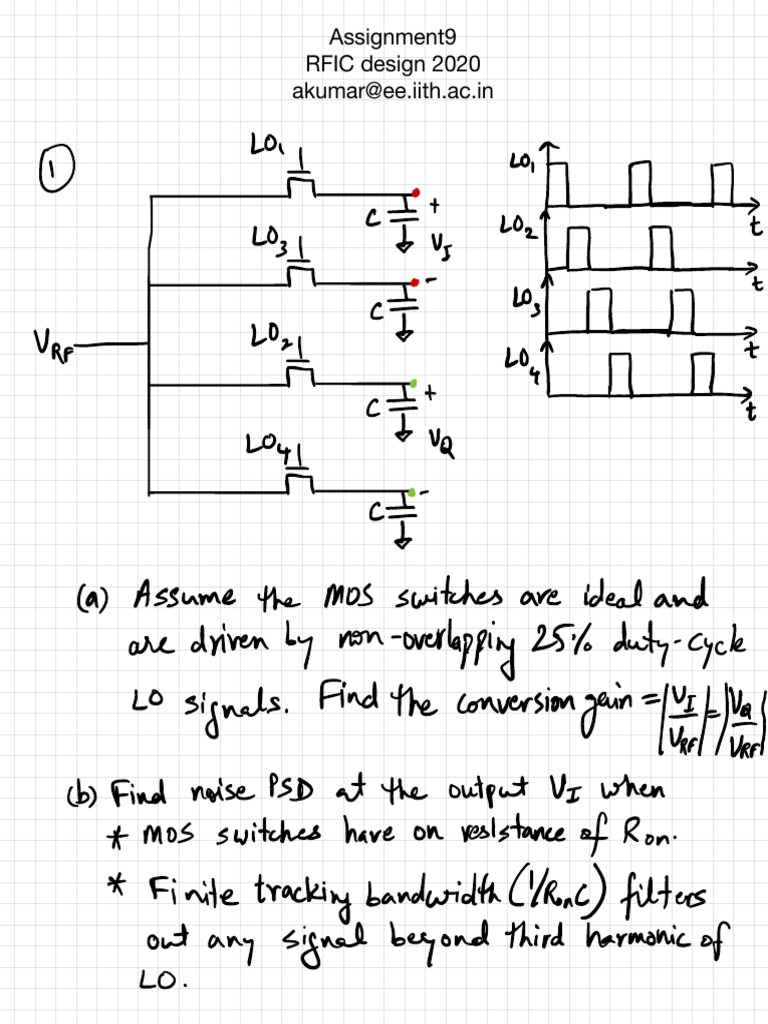 Assignment9
RFIC design 2020
akumar@ee.iith.ac.in
1
LO1
C
+
VI
LO3
-
C
VRF
LO2
+
C
VQ
LO4
-
C
LO1
t
LO2
t
LO3
t
LO4
t
(a) Assume the MOS switches are ideal and
are driven by non-overlapping 25% duty-cycle
LO signals. Find the conversion gain = |VI/VRF| = |VQ/VRF|
(b) Find noise PSD at the output VI when
* MOS switches have on resistance of Ron.
* Finite tracking bandwidth (1/RonC) filters
out any signal beyond third harmonic of
LO.